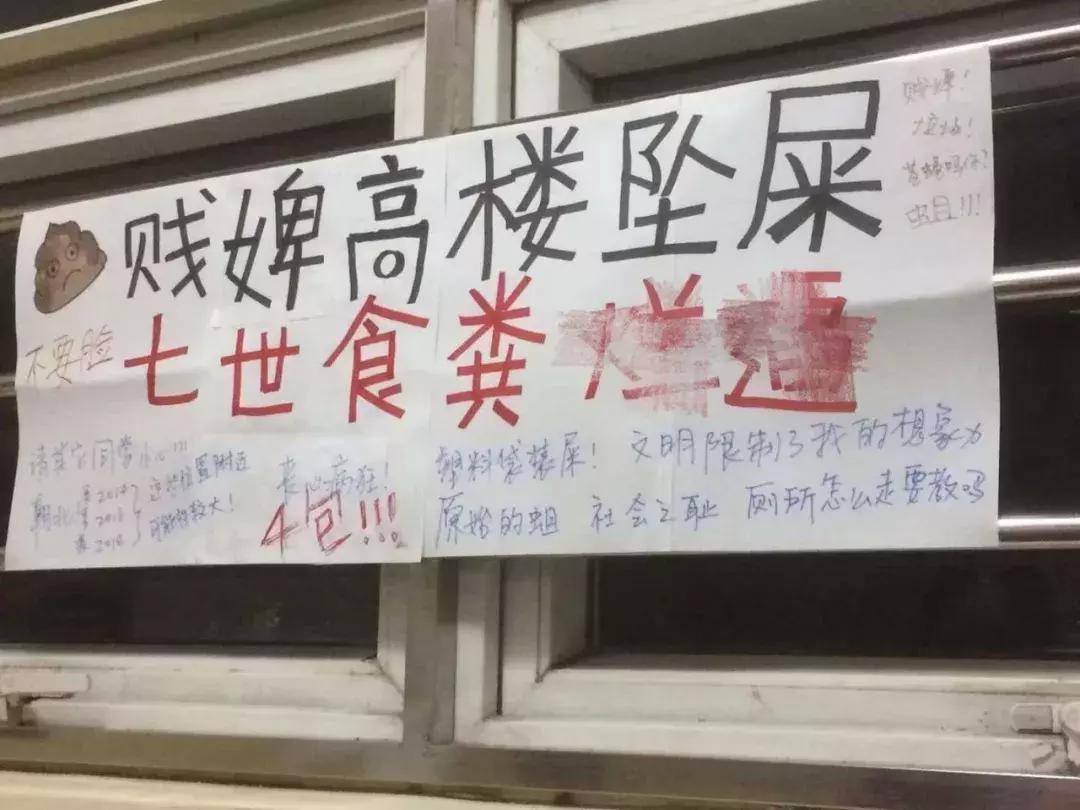 贱婢高楼坠屎
七世食粪
贱婢！
蛆！！！
不要脸
请其它同学小心！！！
2014
朝北 2016
2018
这些位置附近
可能性较大！
丧心病狂！
4包！！！
塑料袋装屎！ 文明限制了我的想象力
原始的蛆 社会之耻 厕所怎么走要教吗